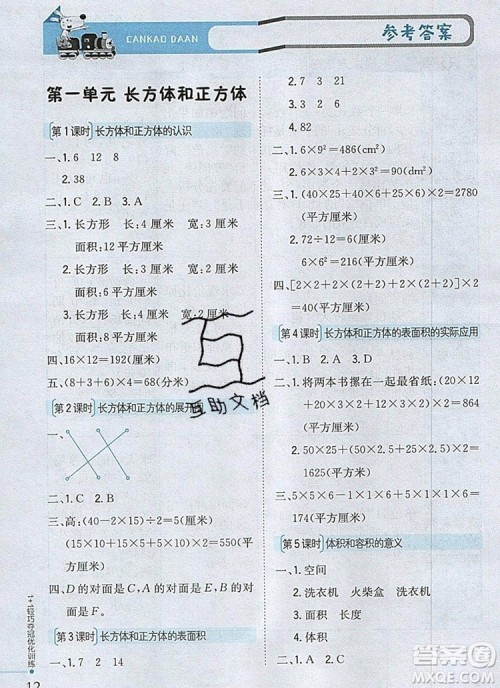 CANKAO DAAN
参考答案
第一单元 长方体和正方体
第1课时 长方体和正方体的认识
一、1.6 12 8
2.38
二、1.C 2.B
三、1.长方形 长:4厘米 宽:3厘米
面积:12平方厘米
2.长方形 长:4厘米 宽:2厘米
面积:8平方厘米
四、16×12=192(厘米)
五、(8+3+6)×4=68(分米)
第2课时 长方体和正方体的展开
一、
二、1.C 2.A
三、高:(40-2×15)÷2=5(厘米)
(15×10+15×5+10×5)×2=
550(平方厘米)
四、D的对面是C,A的对面是E,B的
对面是F。
第3课时 长方体和正方体的表面积
一、1.7 2 14
2.7 3 21
二、1.A 2.B 3.B
4.82
三、1.6×9²=486(cm²)
2.6×3×4×2=144(dm²)
3.(40×25+40×6+25×6)×2=2780
(平方厘米)
4.(10×5+10×2+5×2)×2=160
(平方厘米)
5.72÷12=6(厘米)
6×6²=216(平方厘米)
四、[2×2+2×(2+2)+2×(2+2)]×
2=40(平方厘米)
第4课时 长方体和正方体的表面积的实际应用
一、1.B 2.A 3.D
二、1.将两本书摞在一起最省纸:(20×12
+20×3×2+12×3×2)×2=864
(平方厘米)
2.50×25+(50×2.5+25×2.5)×2=
1625(平方厘米)
三、5×5×6+1×1×6×5-1×1×6=
174(平方厘米)
第5课时 体积和容积的意义
一、1.空间
2.洗衣机 火柴盒 洗衣机
3.石块
4.体积
互助文档
1+1轻巧夺冠优化训练
12
答案圈
MXQE.COM